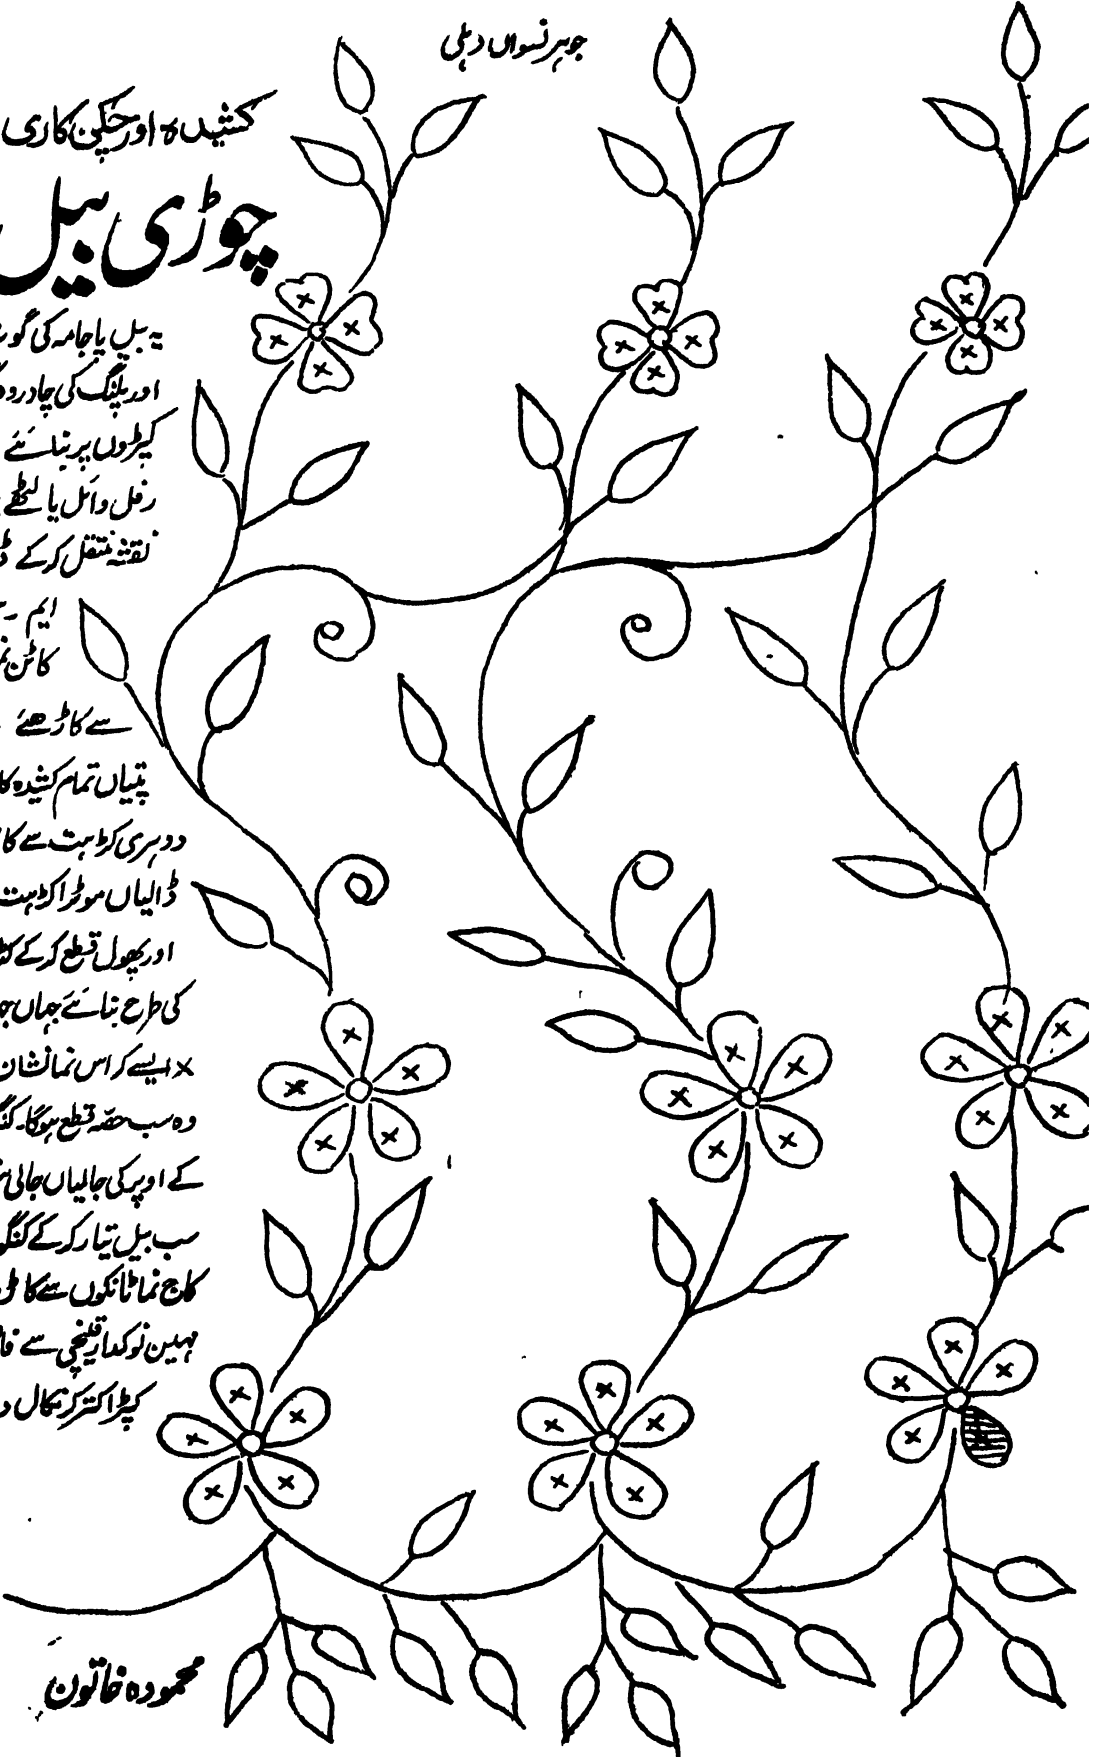 جوہر نسواں دہلی
کشیدہ اور چکن کاری
چوڑی بیل
یہ بیل پاجامہ کی گوٹ
اور پلنگ کی چادروں
کپڑوں پر بنائیے
رفل وائل یا لٹھے
نقشہ منتقل کر کے
ایم
کاٹن
سے کاڑھئے
پتیاں تمام کشیدہ
دوہری کڑہت سے
ڈالیاں موٹرا کڑہت
اور پھول قطع کر کے
کی طرح بنائیے جہاں
× ایسے کراس نما نشان
وہ سب حصّہ قطع ہوگا۔
کے اوپر کی جالیاں جالی
سب بیل تیار کر کے
کاج نما ٹانکوں سے
مہین نوکدار قینچی سے
کپڑا کتر کر نکال
محمودہ خاتون